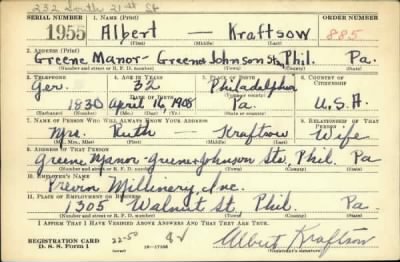 232 South 21st St
SERIAL NUMBER 1. NAME (Print) ORDER NUMBER
1955 Albert — Kraftsow 885
(First) (Middle) (Last)
2. ADDRESS (Print)
Greene Manor - Greene & Johnson Sts, Phil. Pa.
(Number and street or R. F. D. number) (Town) (County) (State)
3. TELEPHONE 4. AGE IN YEARS 5. PLACE OF BIRTH 6. COUNTRY OF CITIZENSHIP
Ger. 32 Philadelphia
DATE OF BIRTH
1830 April 16, 1908 Pa. U.S.A.
7. NAME OF PERSON WHO WILL ALWAYS KNOW YOUR ADDRESS 8. RELATIONSHIP OF THAT PERSON
Mrs. Ruth — Kraftsow Wife
(Mr., Mrs., Miss) (First) (Middle) (Last)
9. ADDRESS OF THAT PERSON
Greene Manor - Greene & Johnson Sts, Phil. Pa
(Number and street or R. F. D. number) (Town) (County) (State)
10. EMPLOYER'S NAME
Millinery, Inc.
11. PLACE OF EMPLOYMENT OR BUSINESS
1305 Walnut St. Phil. Pa.
(Number and street or R. F. D. number) (Town) (County) (State)
I AFFIRM THAT I HAVE VERIFIED ABOVE ANSWERS AND THAT THEY ARE TRUE.
REGISTRATION CARD 22-50 Albert Kraftsow
D. S. S. Form 1 16—17105 (Registrant's signature)